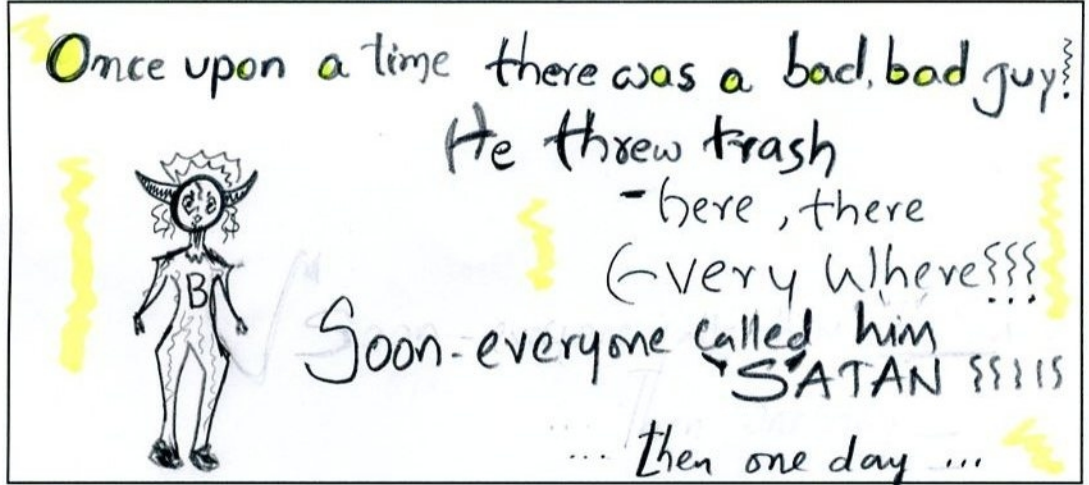 Once upon a time there was a bad, bad guy!
He threw trash
- here, there
Every Where!!!
Soon - everyone called him
SATAN !!!!!
... then one day ...
B